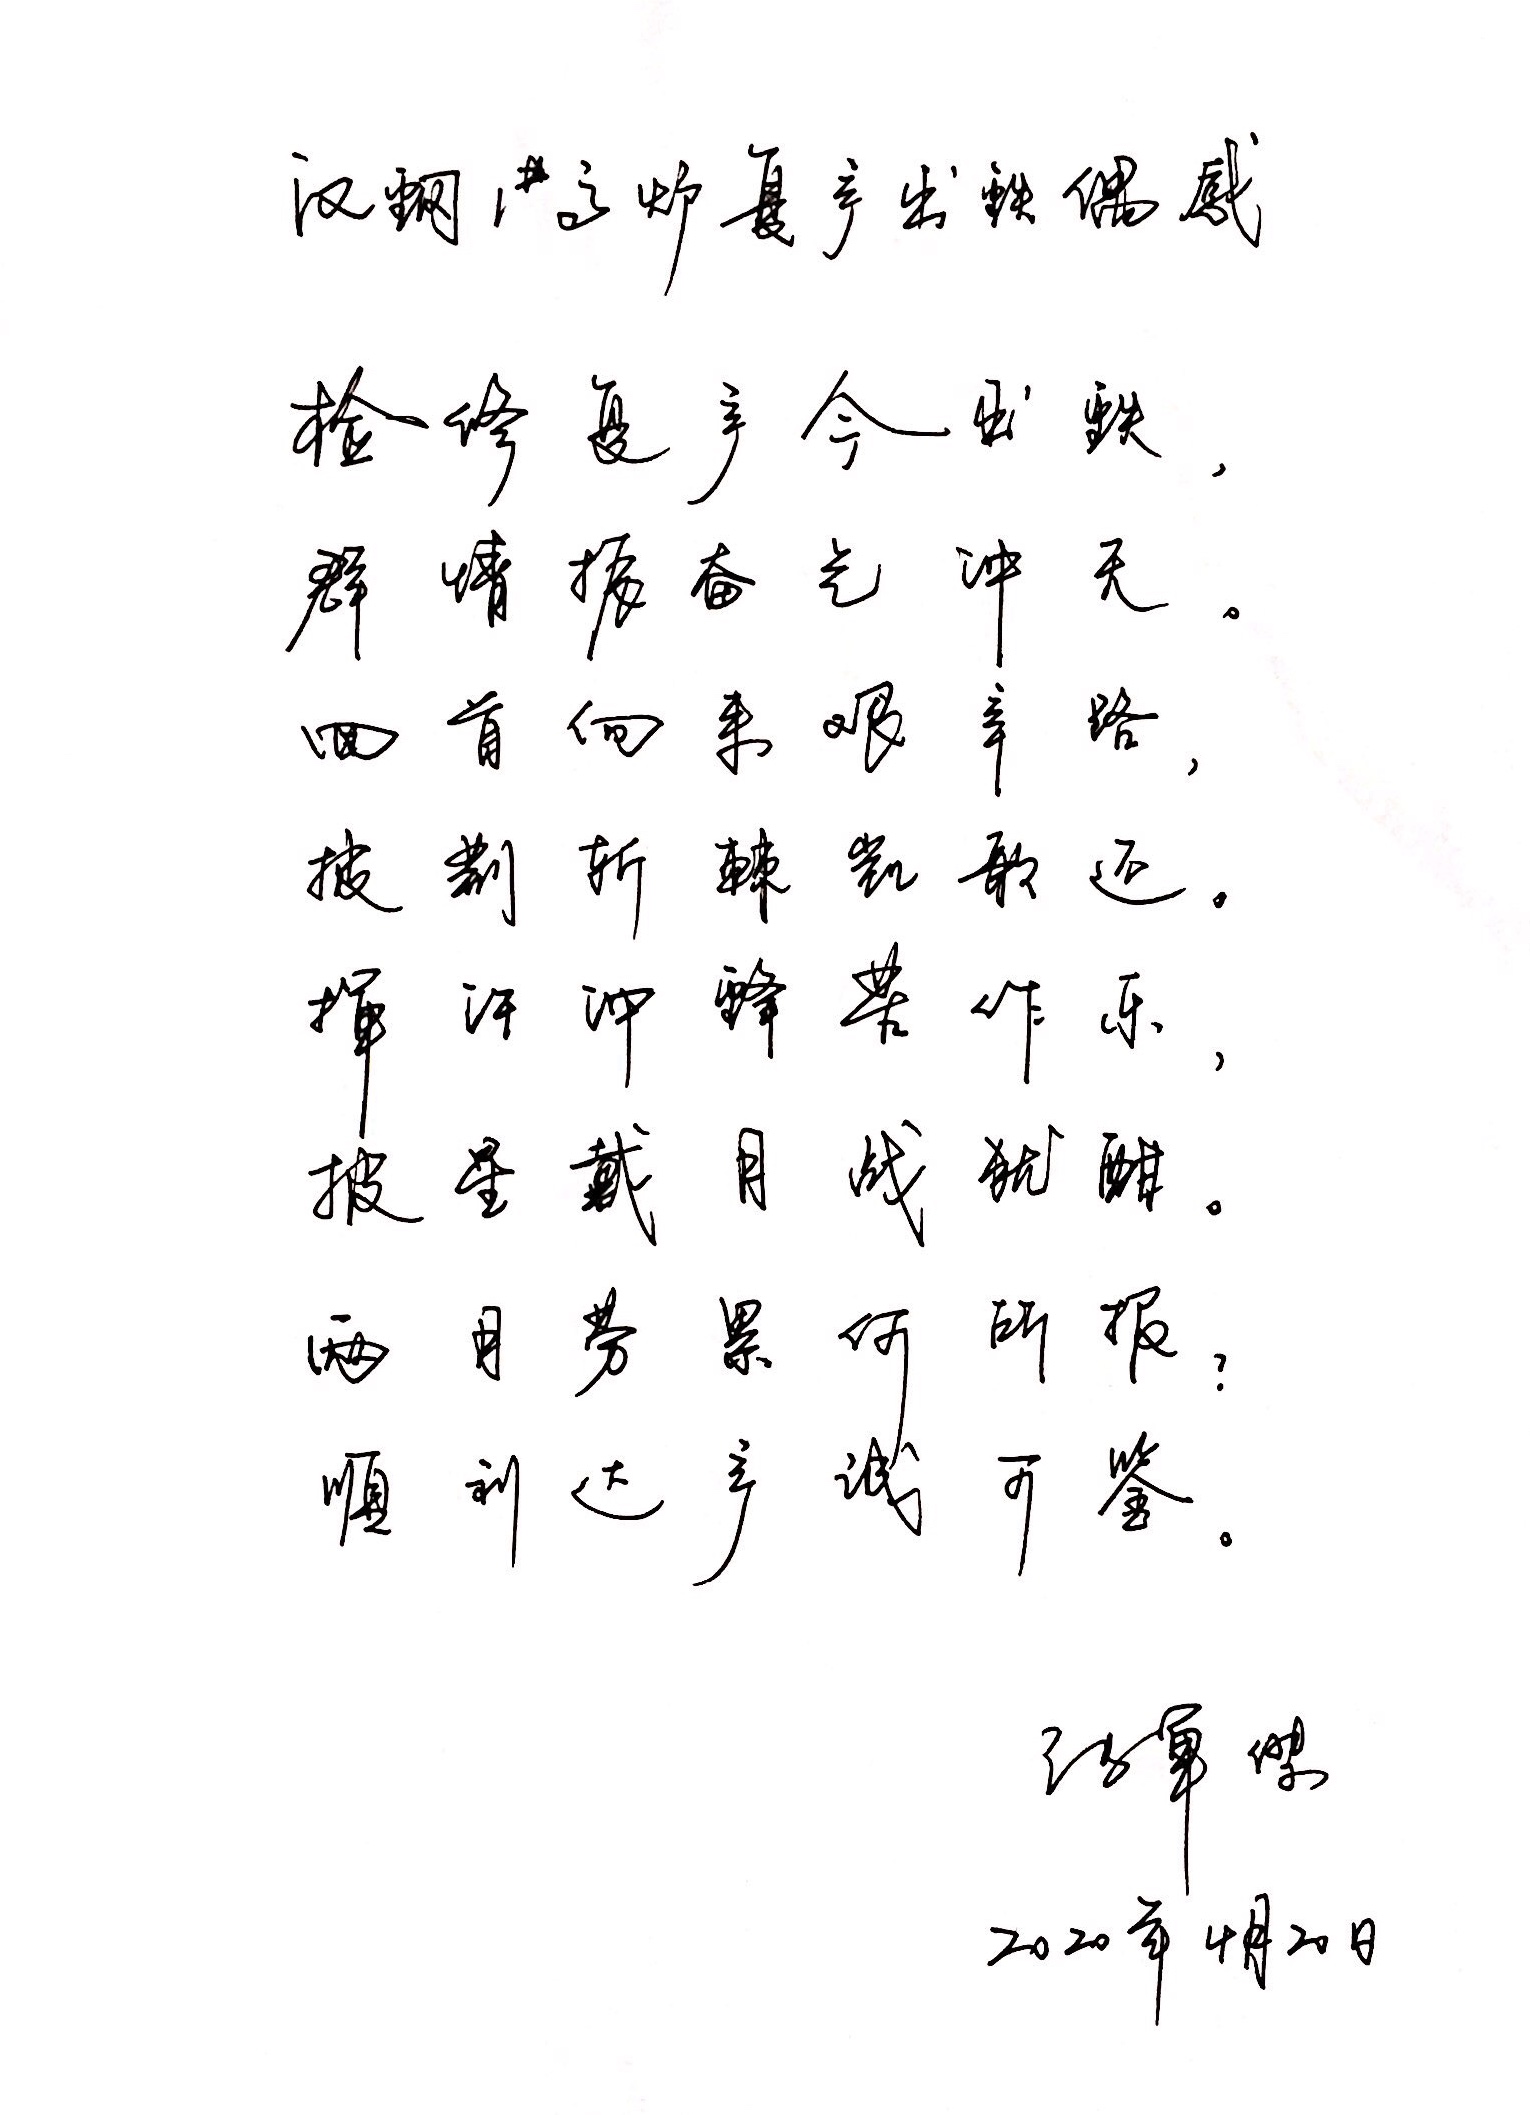 汉钢1#高炉复产出铁偶感
检修复产今出铁，
群情振奋气冲天。
回首向来艰辛路，
披荆斩棘凯歌还。
挥汗冲锋苦作乐，
披星戴月战犹酣。
两月劳累何所报？
顺利达产诚可鉴。
张军杰
2020年4月20日